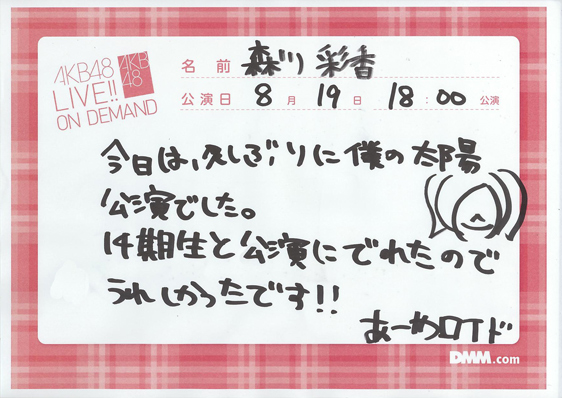 AKB48
LIVE!!
ON DEMAND
AKB
48
名前 森川 彩香
公演日 8月 19日 18:00 公演
今日は、久しぶりに僕の太陽
公演でした。
14期生と公演にでれたので
うれしかったです!!
あーめロイド
DMM.com